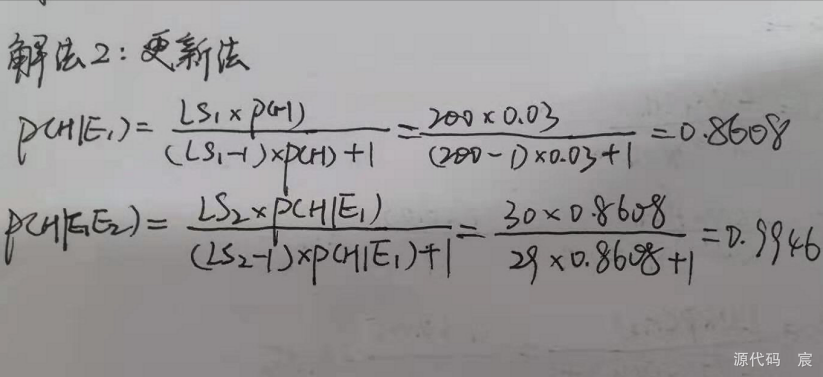 解法2：更新法
P(H|E₁) = LS₁ × P(H) / (LS₁-1) × P(H) + 1 = 200 × 0.03 / (200-1) × 0.03 + 1 = 0.8608
P(H|E₁E₂) = LS₂ × P(H|E₁) / (LS₂-1) × P(H|E₁) + 1 = 30 × 0.8608 / 29 × 0.8608 + 1 = 0.9946
源代码 宸